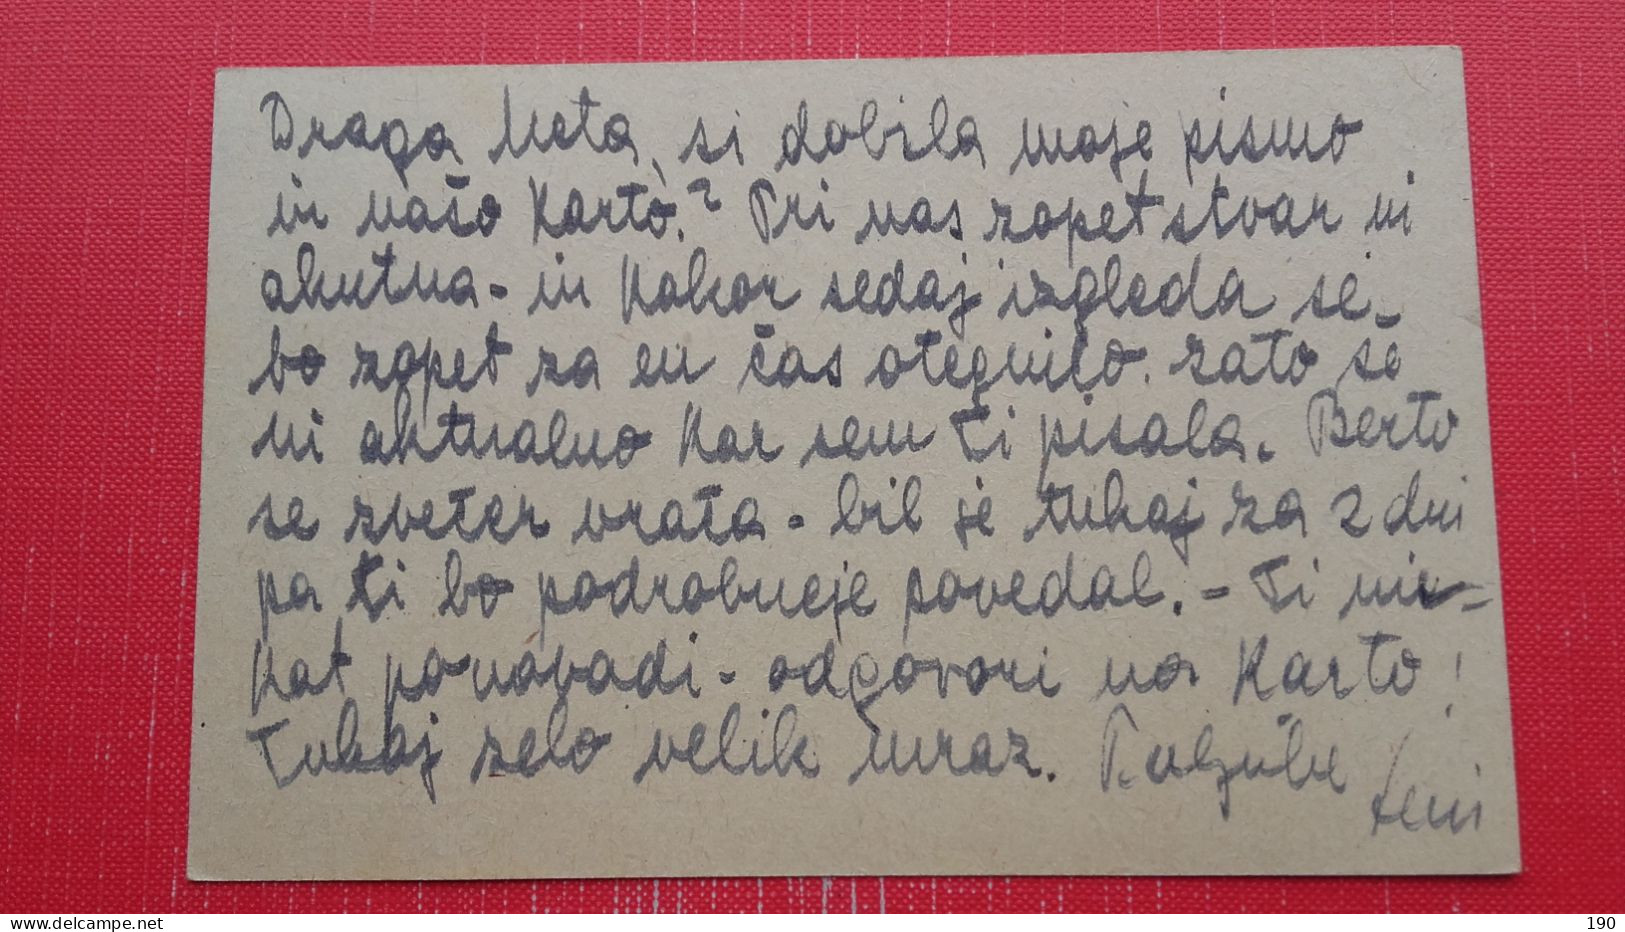 Draga Meta, si dobila moje pismo
in našo karto? Pri nas zopet stvar ni
akutna - in kakor sedaj izgleda se
bo zopet za en čas otegnilo. zato še
ni aktualno kar sem ti pisala. Berto
se zvečer vrača - bil je tukaj za 2 dni
pa ti bo podrobneje povedal. - Ti nik=
kat ponavadi - odgovori na karto!
Tukaj zelo velik mraz.
delcampe.net
190